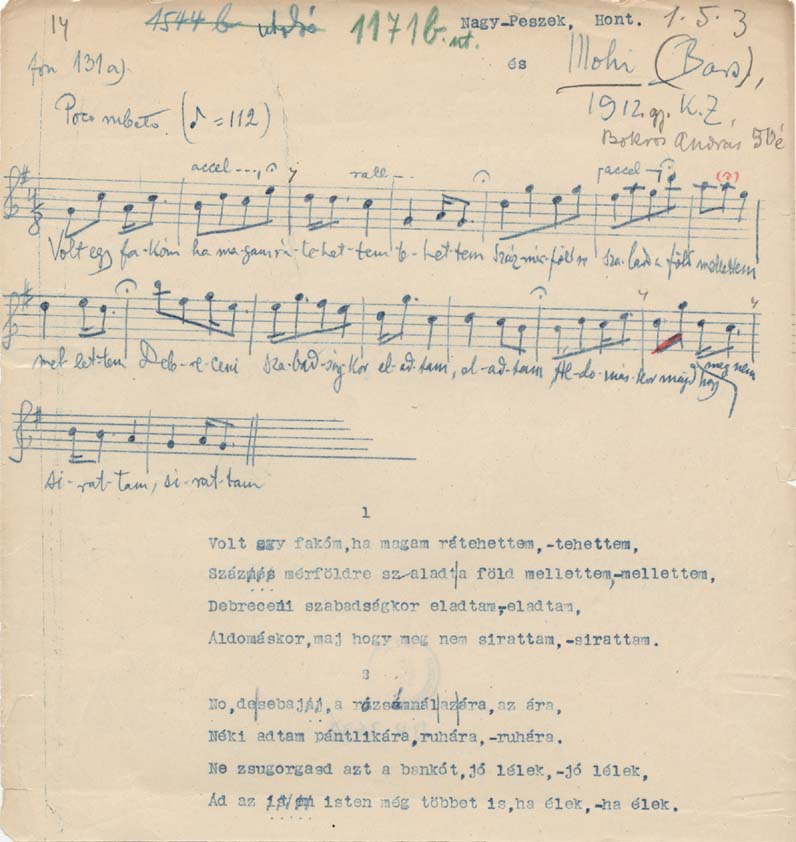 14 1544 b utolsó 1171 b. ut. Nagy-Peszek, Hont. 1. 5. 3
fon 131a) és Mohi (Bars),
1912. gy. K. Z.
Bokros András 50 é
Poco rubato. (♪ = 112)
accel ---, rall -- accel
4/8
Volt egy fa-kóm ha ma-gam rá-te-het-tem te-het-tem Száz mér-föld-re sza-lad a föld mellettem
mel-let-tem Deb-re-ceni sza-bad-ság-kor el-ad-tam, el-ad-tam Ál-do-más-kor majd hogy meg nem
si-rat-tam, si-rat-tam
1
Volt egy fakóm, ha magam rátehettem, -tehettem,
Száz mérföldre szaladt a föld mellettem, -mellettem,
Debreceni szabadságkor eladtam, -eladtam,
Áldomáskor, maj hogy meg nem sirattam, -sirattam.
No, de sebaj, a rózsámnál az ára, az ára,
Néki adtam pántlikára, ruhára, -ruhára.
Ne zsugorgasd azt a bankót, jó lélek, -jó lélek,
Ád az isten még többet is, ha élek, -ha élek.